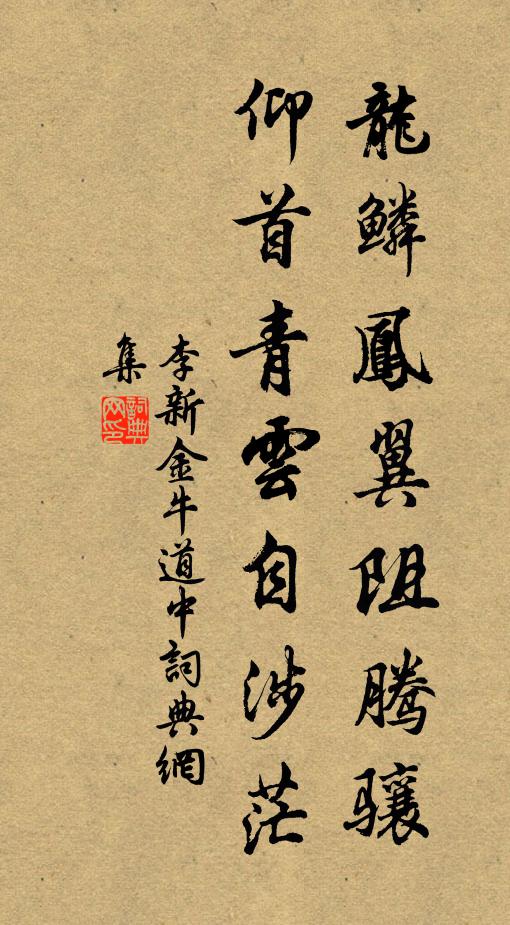 龍鱗鳳翼阻腾驤
仰首青雲自涉茫
李新金牛道中詞典網
集
詞典
网印